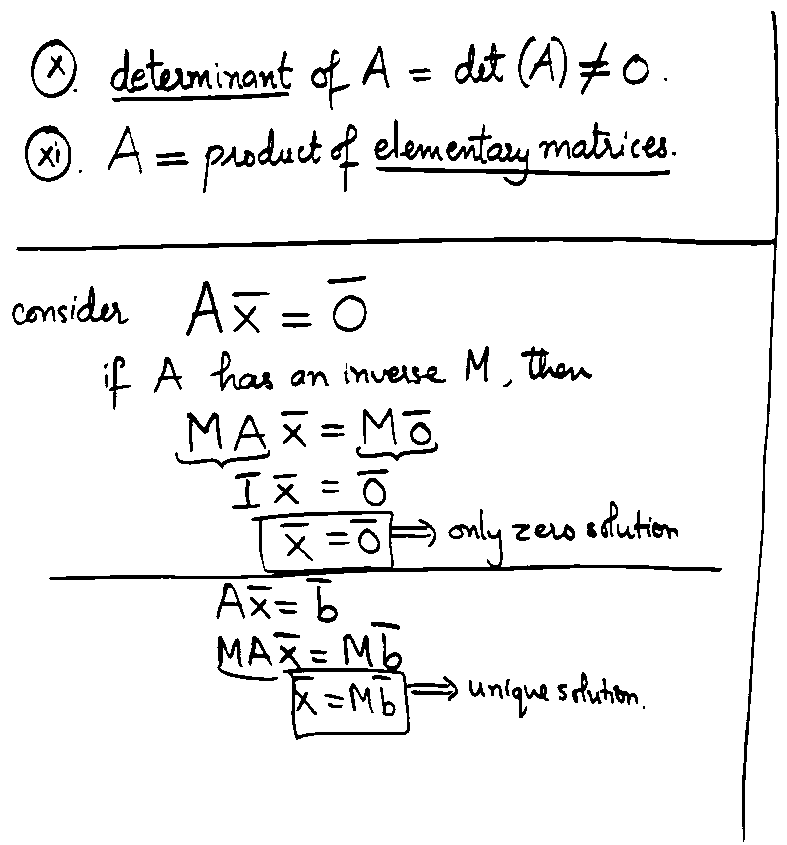 (x). determinant of A = det (A) ≠ 0.
(xi). A = product of elementary matrices.
consider A x̄ = 0̄
if A has an inverse M, then
M A x̄ = M 0̄
I x̄ = 0̄
x̄ = 0̄ ⇒ only zero solution
A x̄ = b̄
M A x̄ = M b̄
x̄ = M b̄ ⇒ unique solution.